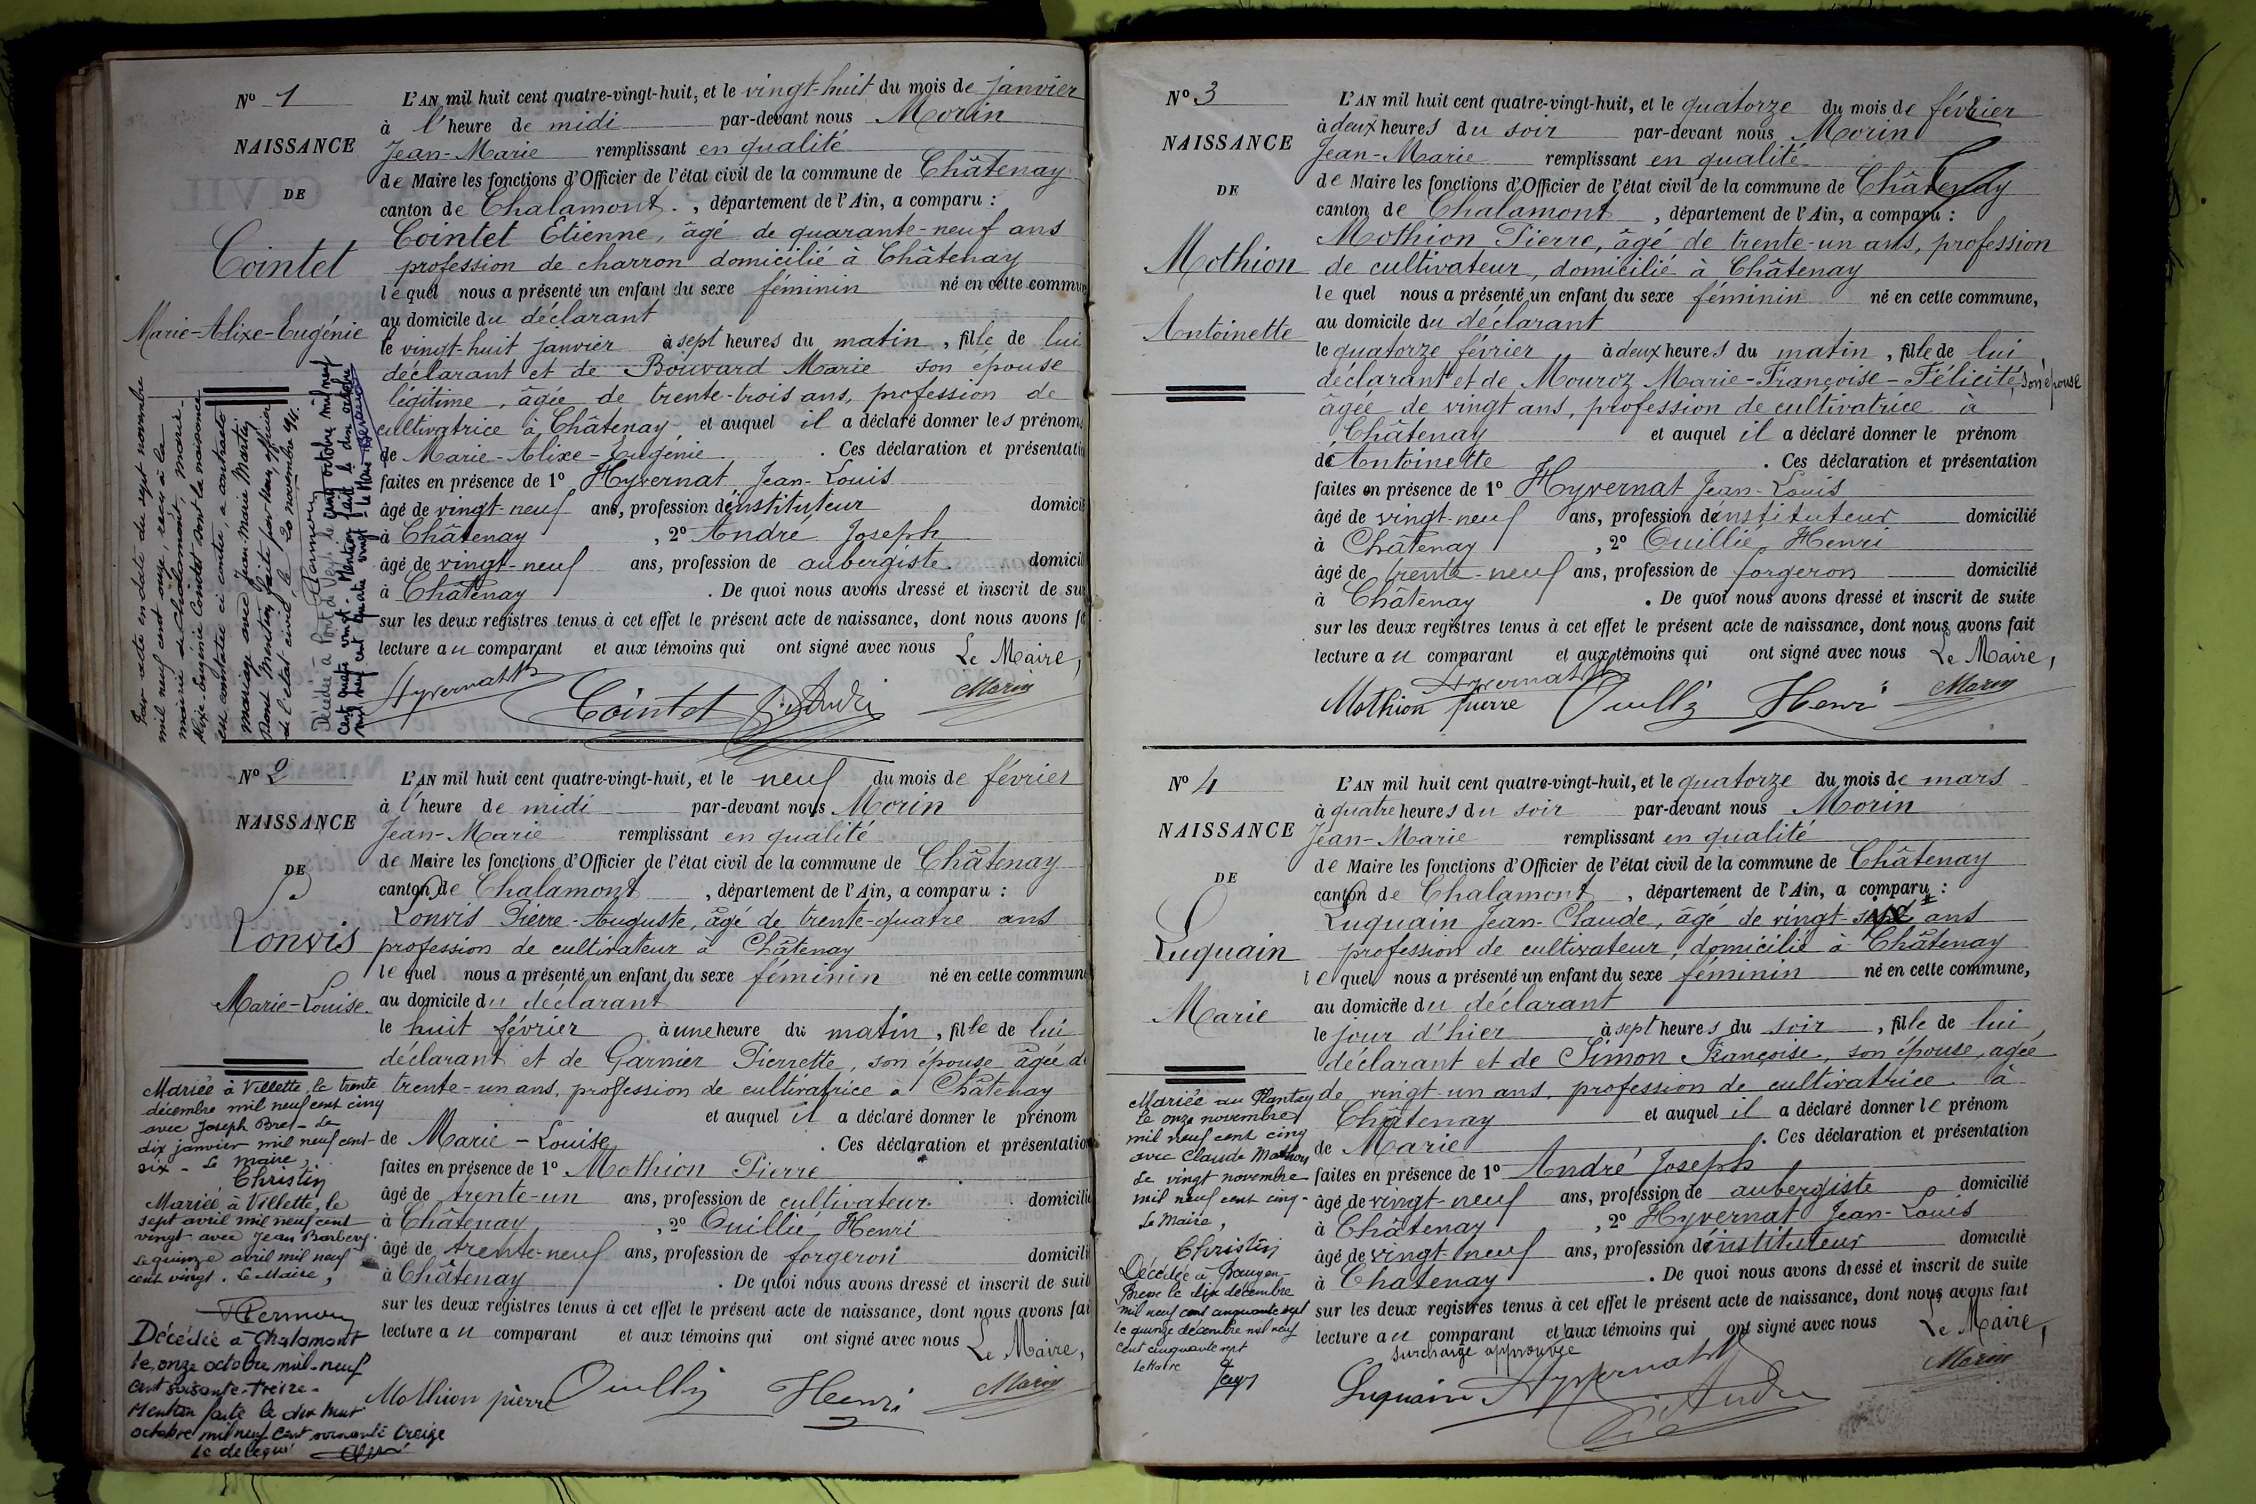 N° 1
NAISSANCE
DE
Cointet
Marie-Alixe-Eugénie
Par acte en date du sept novembre
mil neuf cent onze, reçu à la
mairie de Chalamont, Marie-
Alixe-Eugénie Cointet dont la naissance
est constatée ci contre, a contracté
mariage avec Jean Marie Martin
Dont Mention faite par nous, officier
de l'état civil, le 20 novembre 1911.
Décédée à Pont de Veyle le cinq octobre mil neuf
cent quatre vingt - Mention faite le dix octobre
mil neuf cent quatre vingt - Le Maire
L'AN mil huit cent quatre-vingt-huit, et le vingt-huit du mois de janvier
à l'heure de midi par-devant nous Morin
Jean-Marie remplissant en qualité
de Maire les fonctions d'Officier de l'état civil de la commune de Châtenay
canton de Chalamont. , département de l'Ain, a comparu :
Cointet Etienne, âgé de quarante-neuf ans
profession de charron domicilié à Châtenay
lequel nous a présenté un enfant du sexe féminin né en cette commune
au domicile du déclarant
le vingt-huit janvier à sept heures du matin, fille de lui
déclarant et de Bouvard Marie son épouse
légitime, âgée de trente-trois ans, profession de
cultivatrice à Châtenay et auquel il a déclaré donner les prénoms
de Marie-Alixe-Eugénie . Ces déclaration et présentation
faites en présence de 1° Hyvernat Jean-Louis
âgé de vingt-neuf ans, profession d'instituteur domicilié
à Châtenay , 2° André Joseph
âgé de vingt-neuf ans, profession de aubergiste. domicilié
à Châtenay . De quoi nous avons dressé et inscrit de suite
sur les deux registres tenus à cet effet le présent acte de naissance, dont nous avons fait
lecture au comparant et aux témoins qui ont signé avec nous Le Maire,
Hyvernat Cointet J. André Morin
N° 2
NAISSANCE
DE
Lonvis
Marie-Louise.
Mariée à Villette, le trente
décembre mil neuf cent cinq
avec Joseph Bret - Le
dix janvier mil neuf cent
six - Le Maire,
Christin
Mariée à Villette, le
sept avril mil neuf cent
vingt avec Jean Barbery.
Le quinze avril mil neuf
cent vingt. Le Maire,
Décédée à Chalamont
le onze octobre mil-neuf
cent soixante-treize-
Mention faite le dix huit
octobre mil neuf cent soixante treize
Le délégué
L'AN mil huit cent quatre-vingt-huit, et le neuf du mois de février
à l'heure de midi par-devant nous Morin
Jean-Marie remplissant en qualité
de Maire les fonctions d'Officier de l'état civil de la commune de Châtenay
canton de Chalamont , département de l'Ain, a comparu :
Lonvis Pierre-Auguste, âgé de trente-quatre ans
profession de cultivateur à Châtenay
lequel nous a présenté un enfant du sexe féminin né en cette commune
au domicile du déclarant
le huit février à une heure du matin, fille de lui
déclarant et de Garnier Pierrette, son épouse âgée de
trente-un ans, profession de cultivatrice à Châtenay
et auquel il a déclaré donner le prénom
de Marie-Louise . Ces déclaration et présentation
faites en présence de 1° Mothion Pierre
âgé de trente-un ans, profession de cultivateur. domicilié
à Châtenay , 2° Ouillié Henri
âgé de trente-neuf ans, profession de forgeron domicilié
à Châtenay . De quoi nous avons dressé et inscrit de suite
sur les deux registres tenus à cet effet le présent acte de naissance, dont nous avons fait
lecture au comparant et aux témoins qui ont signé avec nous Le Maire,
Mothion pierre Ouillié Henri Morin
N° 3
NAISSANCE
DE
Mothion
Antoinette
L'AN mil huit cent quatre-vingt-huit, et le quatorze du mois de février
à deux heures du soir par-devant nous Morin
Jean-Marie remplissant en qualité
de Maire les fonctions d'Officier de l'état civil de la commune de Châtenay
canton de Chalamont , département de l'Ain, a comparu :
Mothion Pierre, âgé de trente-un ans, profession
de cultivateur, domicilié à Châtenay
lequel nous a présenté un enfant du sexe féminin né en cette commune,
au domicile du déclarant
le quatorze février à deux heures du matin, fille de lui,
déclarant et de Mouroz Marie-Françoise-Félicité, son épouse
âgée de vingt ans, profession de cultivatrice à
Châtenay et auquel il a déclaré donner le prénom
de Antoinette . Ces déclaration et présentation
faites en présence de 1° Hyvernat Jean-Louis
âgé de vingt-neuf ans, profession d'instituteur domicilié
à Châtenay , 2° Ouillié Henri
âgé de trente-neuf ans, profession de forgeron domicilié
à Châtenay . De quoi nous avons dressé et inscrit de suite
sur les deux registres tenus à cet effet le présent acte de naissance, dont nous avons fait
lecture au comparant et aux témoins qui ont signé avec nous Le Maire,
Hyvernat
Mothion pierre Ouillié Henri Morin
N° 4
NAISSANCE
DE
Luquain
Marie
Mariée au Plantay
le onze novembre
mil neuf cent cinq
avec Claude
Le vingt novembre
mil neuf cent cinq-
Le Maire,
Christin
Décédée à
le dix décembre
mil neuf cent cinquante sept
le quinze décembre mil neuf
cent cinquante sept
Le Maire
L'AN mil huit cent quatre-vingt-huit, et le quatorze du mois de mars
à quatre heures du soir par-devant nous Morin
Jean-Marie remplissant en qualité
de Maire les fonctions d'Officier de l'état civil de la commune de Châtenay
canton de Chalamont , département de l'Ain, a comparu :
Luquain Jean-Claude, âgé de vingt-six ans
profession de cultivateur, domicilié à Châtenay
lequel nous a présenté un enfant du sexe féminin né en cette commune,
au domicile du déclarant
le jour d'hier à sept heures du soir, fille de lui,
déclarant et de Simon Françoise, son épouse, agée
de vingt-un ans, profession de cultivatrice à
Châtenay et auquel il a déclaré donner le prénom
de Marie . Ces déclaration et présentation
faites en présence de 1° André Joseph
âgé de vingt-neuf ans, profession de aubergiste domicilié
à Châtenay , 2° Hyvernat Jean-Louis
âgé de vingt-neuf ans, profession d'instituteur domicilié
à Chatenay . De quoi nous avons dressé et inscrit de suite
sur les deux registres tenus à cet effet le présent acte de naissance, dont nous avons fait
lecture au comparant et aux témoins qui ont signé avec nous Le Maire,
surcharge approuvée
Luquain Hyvernat J. André Morin